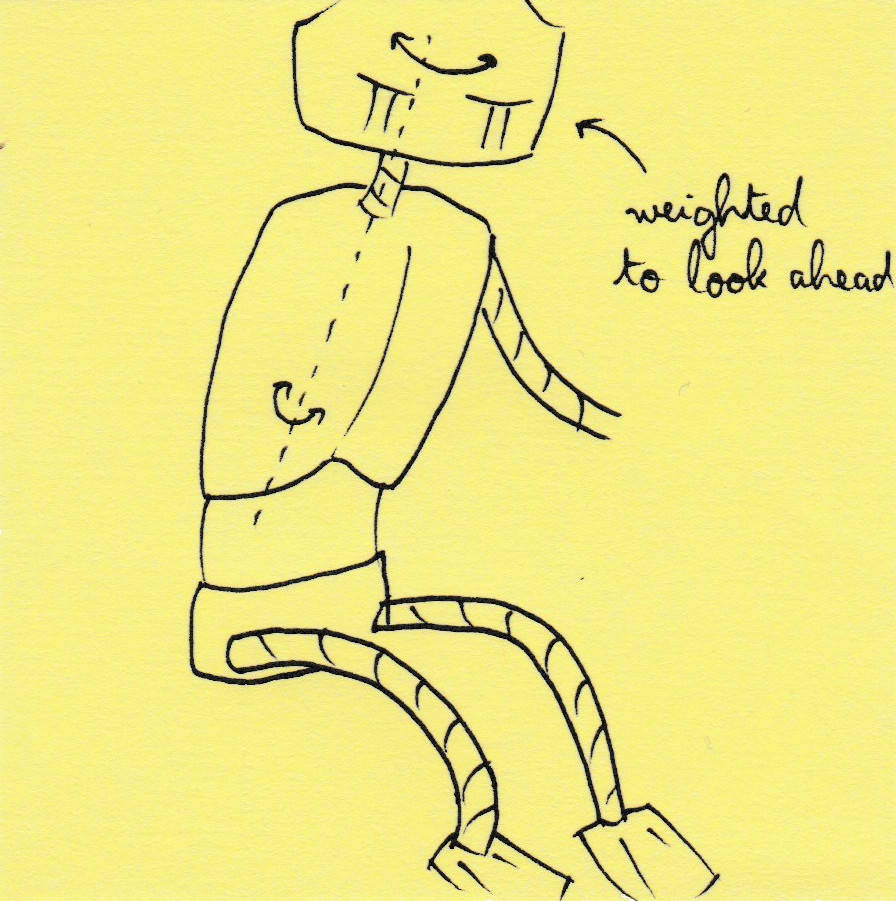 weighted
to look ahead